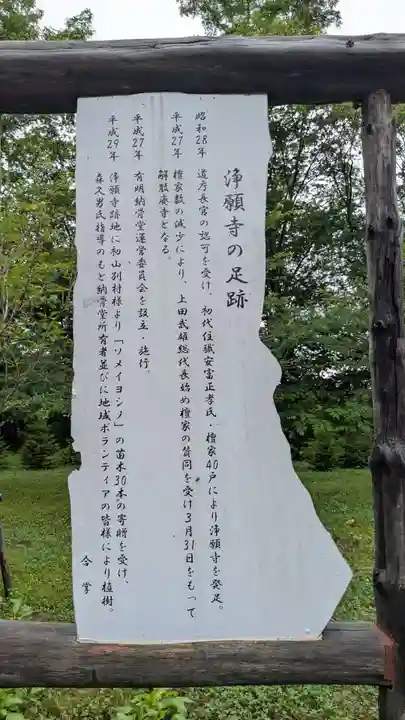 浄願寺の足跡
昭和28年 道庁長官の認可を受け、初代住職安富正孝氏・檀家40戸により浄願寺を発足。
平成27年 檀家数の減少により、上田武雄総代長始め檀家の賛同を受け3月31日をもって
解散廃寺となる。
平成27年 有明納骨堂運営委員会を設立・施行。
平成29年 浄願寺跡地に初山別村様より「ソメイヨシノ」の苗木30本の寄贈を受け、
森久男氏指導のもと納骨堂所有者並びに地域ボランティアの皆様により植樹。
合掌